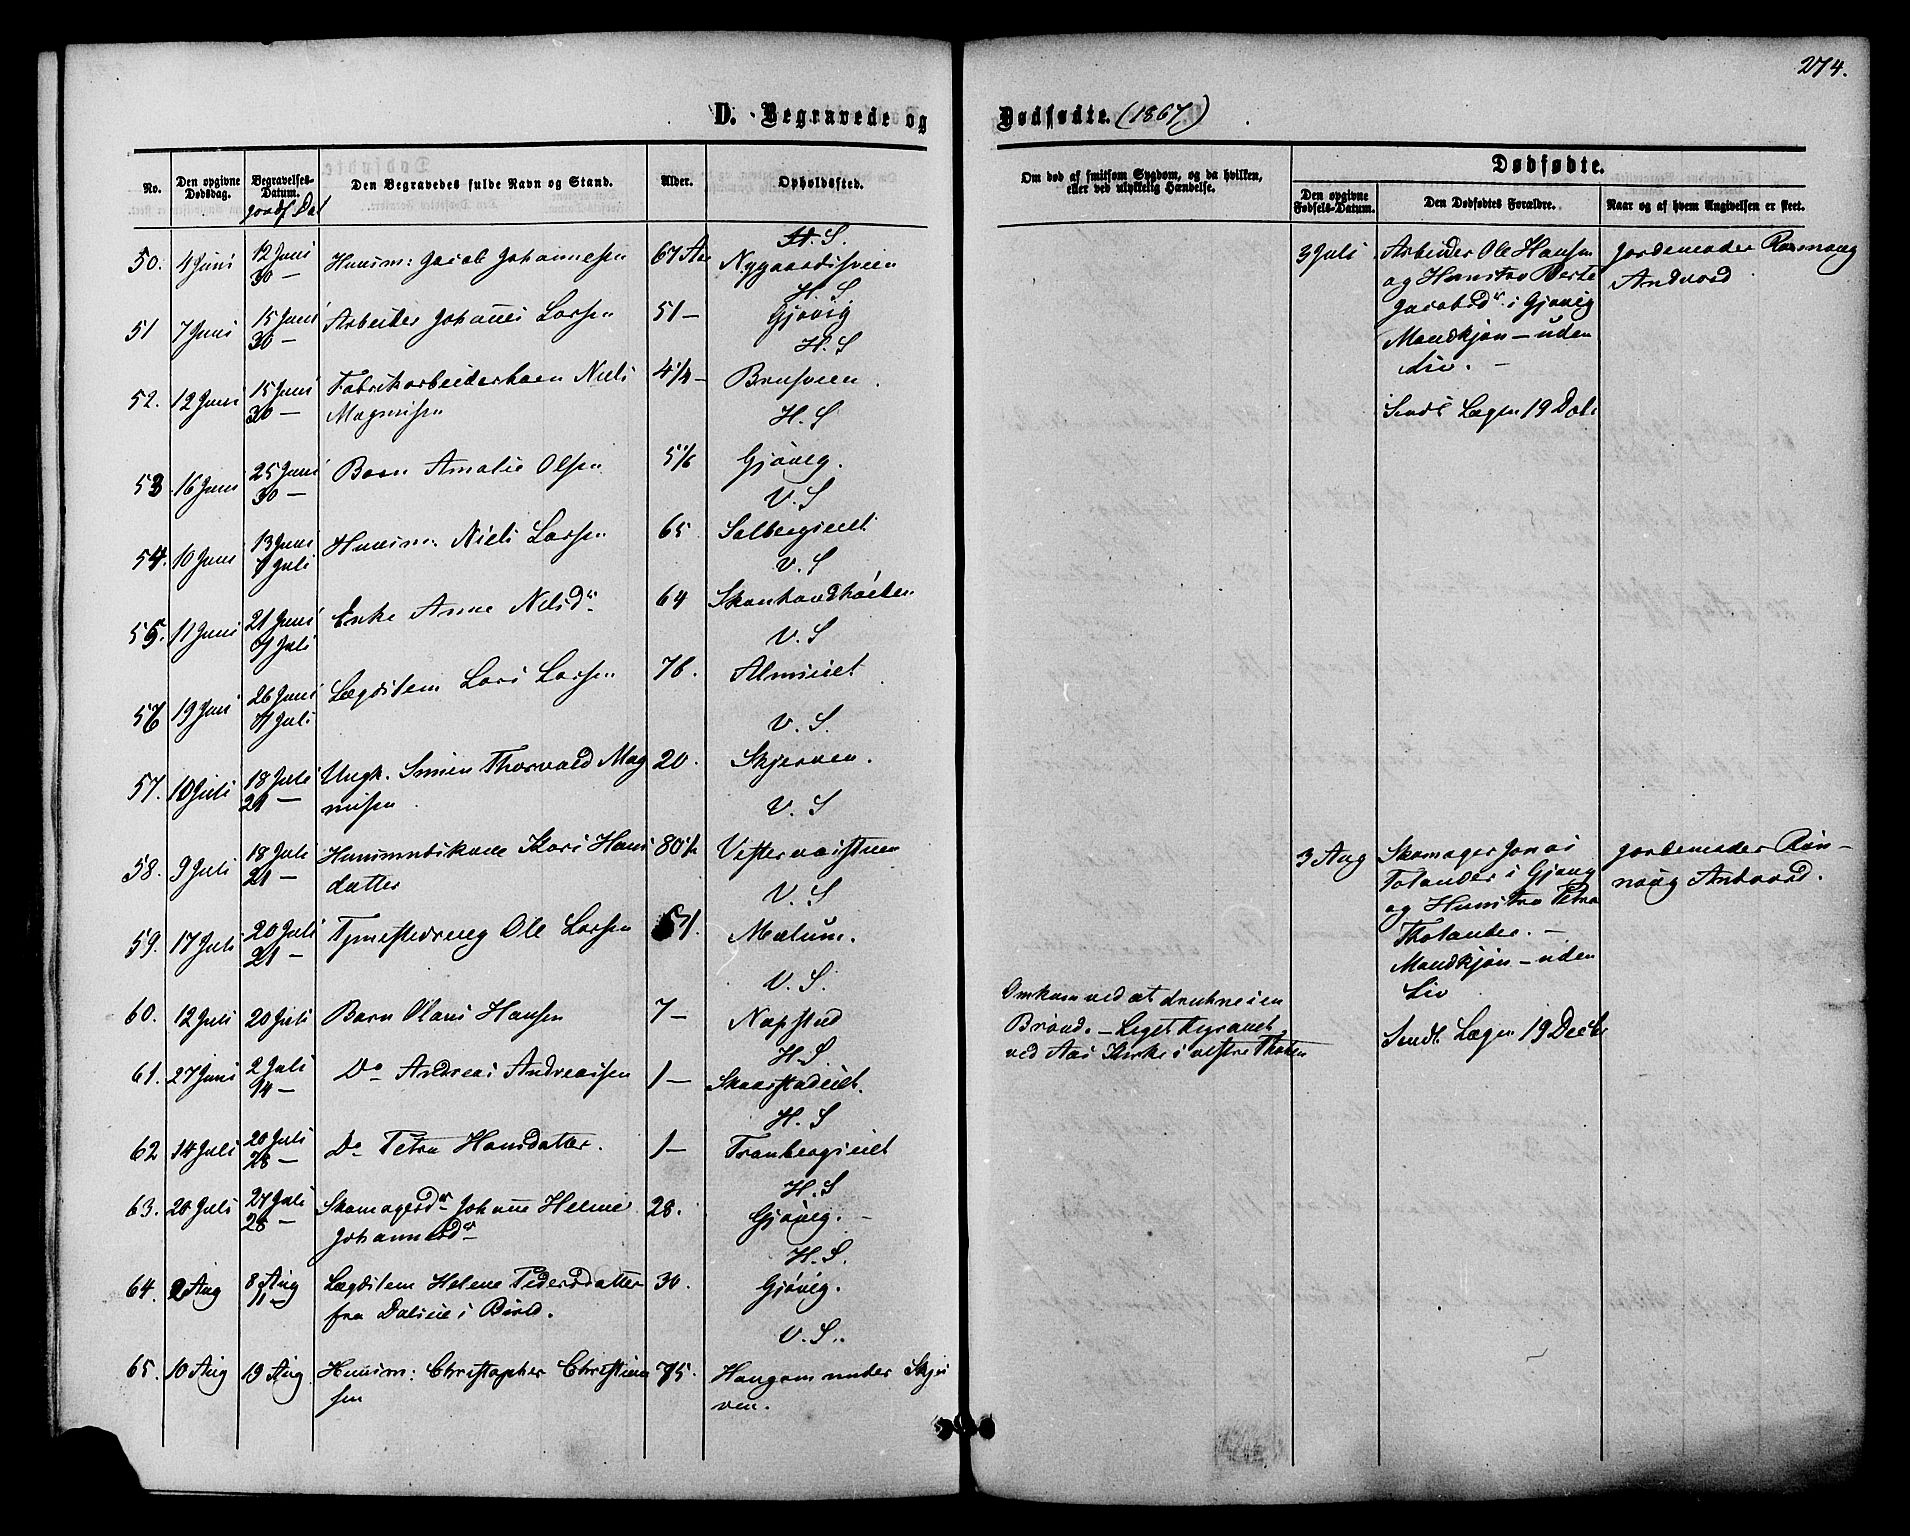 274.
D. Begravede og Dødfødte. (1867)
No.
Den opgivne Dødsdag.
Begravelses-Datum.
Jordf. Dat
Den Begravedes fulde Navn og Stand.
Alder.
Opholdssted.
Om død af smitsom Sygdom, og da hvilken, eller ved ulykkelig Hændelse.
Dødfødte.
Den opgivne Fødsels-Datum.
Den Dødfødtes Forældre.
Naar og af hvem Angivelsen er skeet.
H. S.
50. 4 Juni 12 Juni Huusm: Jacob Johannesen 67 Aar Nygaardsveien
30 —
H. S
51 7 Juni 15 Juni Arbeider Johannes Larsen 51 — Gjøvig
30 —
H. S
52. 12 Juni 15 Juni Fabrikarbeiderbarn Niels 4/4 — Brusveien.
30 — Magnusen
H. S
53 16 Juni 25 Juni Barn Amalie Olsen 5/6 Gjøvig.
30 —
V. S
54. 10 Juni 13 Juni Huusm: Niels Larsen 65 Solbergseiet
7 Juli
V. S
55. 11 Juni 21 Juni Enke Anne Nilsdr 64
7 Juli
V. S
56 19 Juni 26 Juni Lægdslem Lars Larsen 76. Almseiet
7 Juli
V. S.
57. 10 Juli 18 Juli Ungk. Simen Thorvald Mag 20. Skjerven.
21 — nusen
V. S
58. 9 Juli 18 Juli Kari Hans 80 1/2
21 — datter
V. S
59. 17 Juli 20 Juli Ole Larsen 51. Mælum.
21 —
V. S.
60. 12 Juli 20 Juli Barn Olaus Hansen 7 — Napstad
H. S.
61. 27 Juni 2 Juli Do Andreas Andreassen 1 — Skaarstadeiet.
14 —
H. S
62 14 Juli 20 Juli Do Petra Hansdatter. 1 — Tranbergseiet
28 —
H. S
63. 20 Juli 27 Juli Skomagerdr Johanne Helene 28. Gjøvig. —
28 — Johannesdr
H. S.
64. 2 Aug 8 Aug Lægdslem Helene Pedersdatter 30. Gjøvig.
11 — fra Dalseie i Birid.
V. S.
65. 10 Aug 19 Aug Huusm: Christopher Christian 75. Haugom under Skjer
sen ven.
Omkom ved at drukne i en
Brønd. — Liget begravet
ved Aas Kirke i vestre Thoten
3 Juli
Arbeider Ole Hansen
og Hustru Berte
Jacobsdr i Gjøvig
Mandkjøn — uden
Liv. —
Sendt Lægen 19 Dec
Jordemoder Rønnaug
Andvord
3 Aug
Skomager Jonas
Tolander i Gjøvig
og Hustru Petra
Tholander. —
Mandkjøn — uden
Liv
Sendt Lægen 19 Decbr
Jordemoder Røn-
naug Andvord.